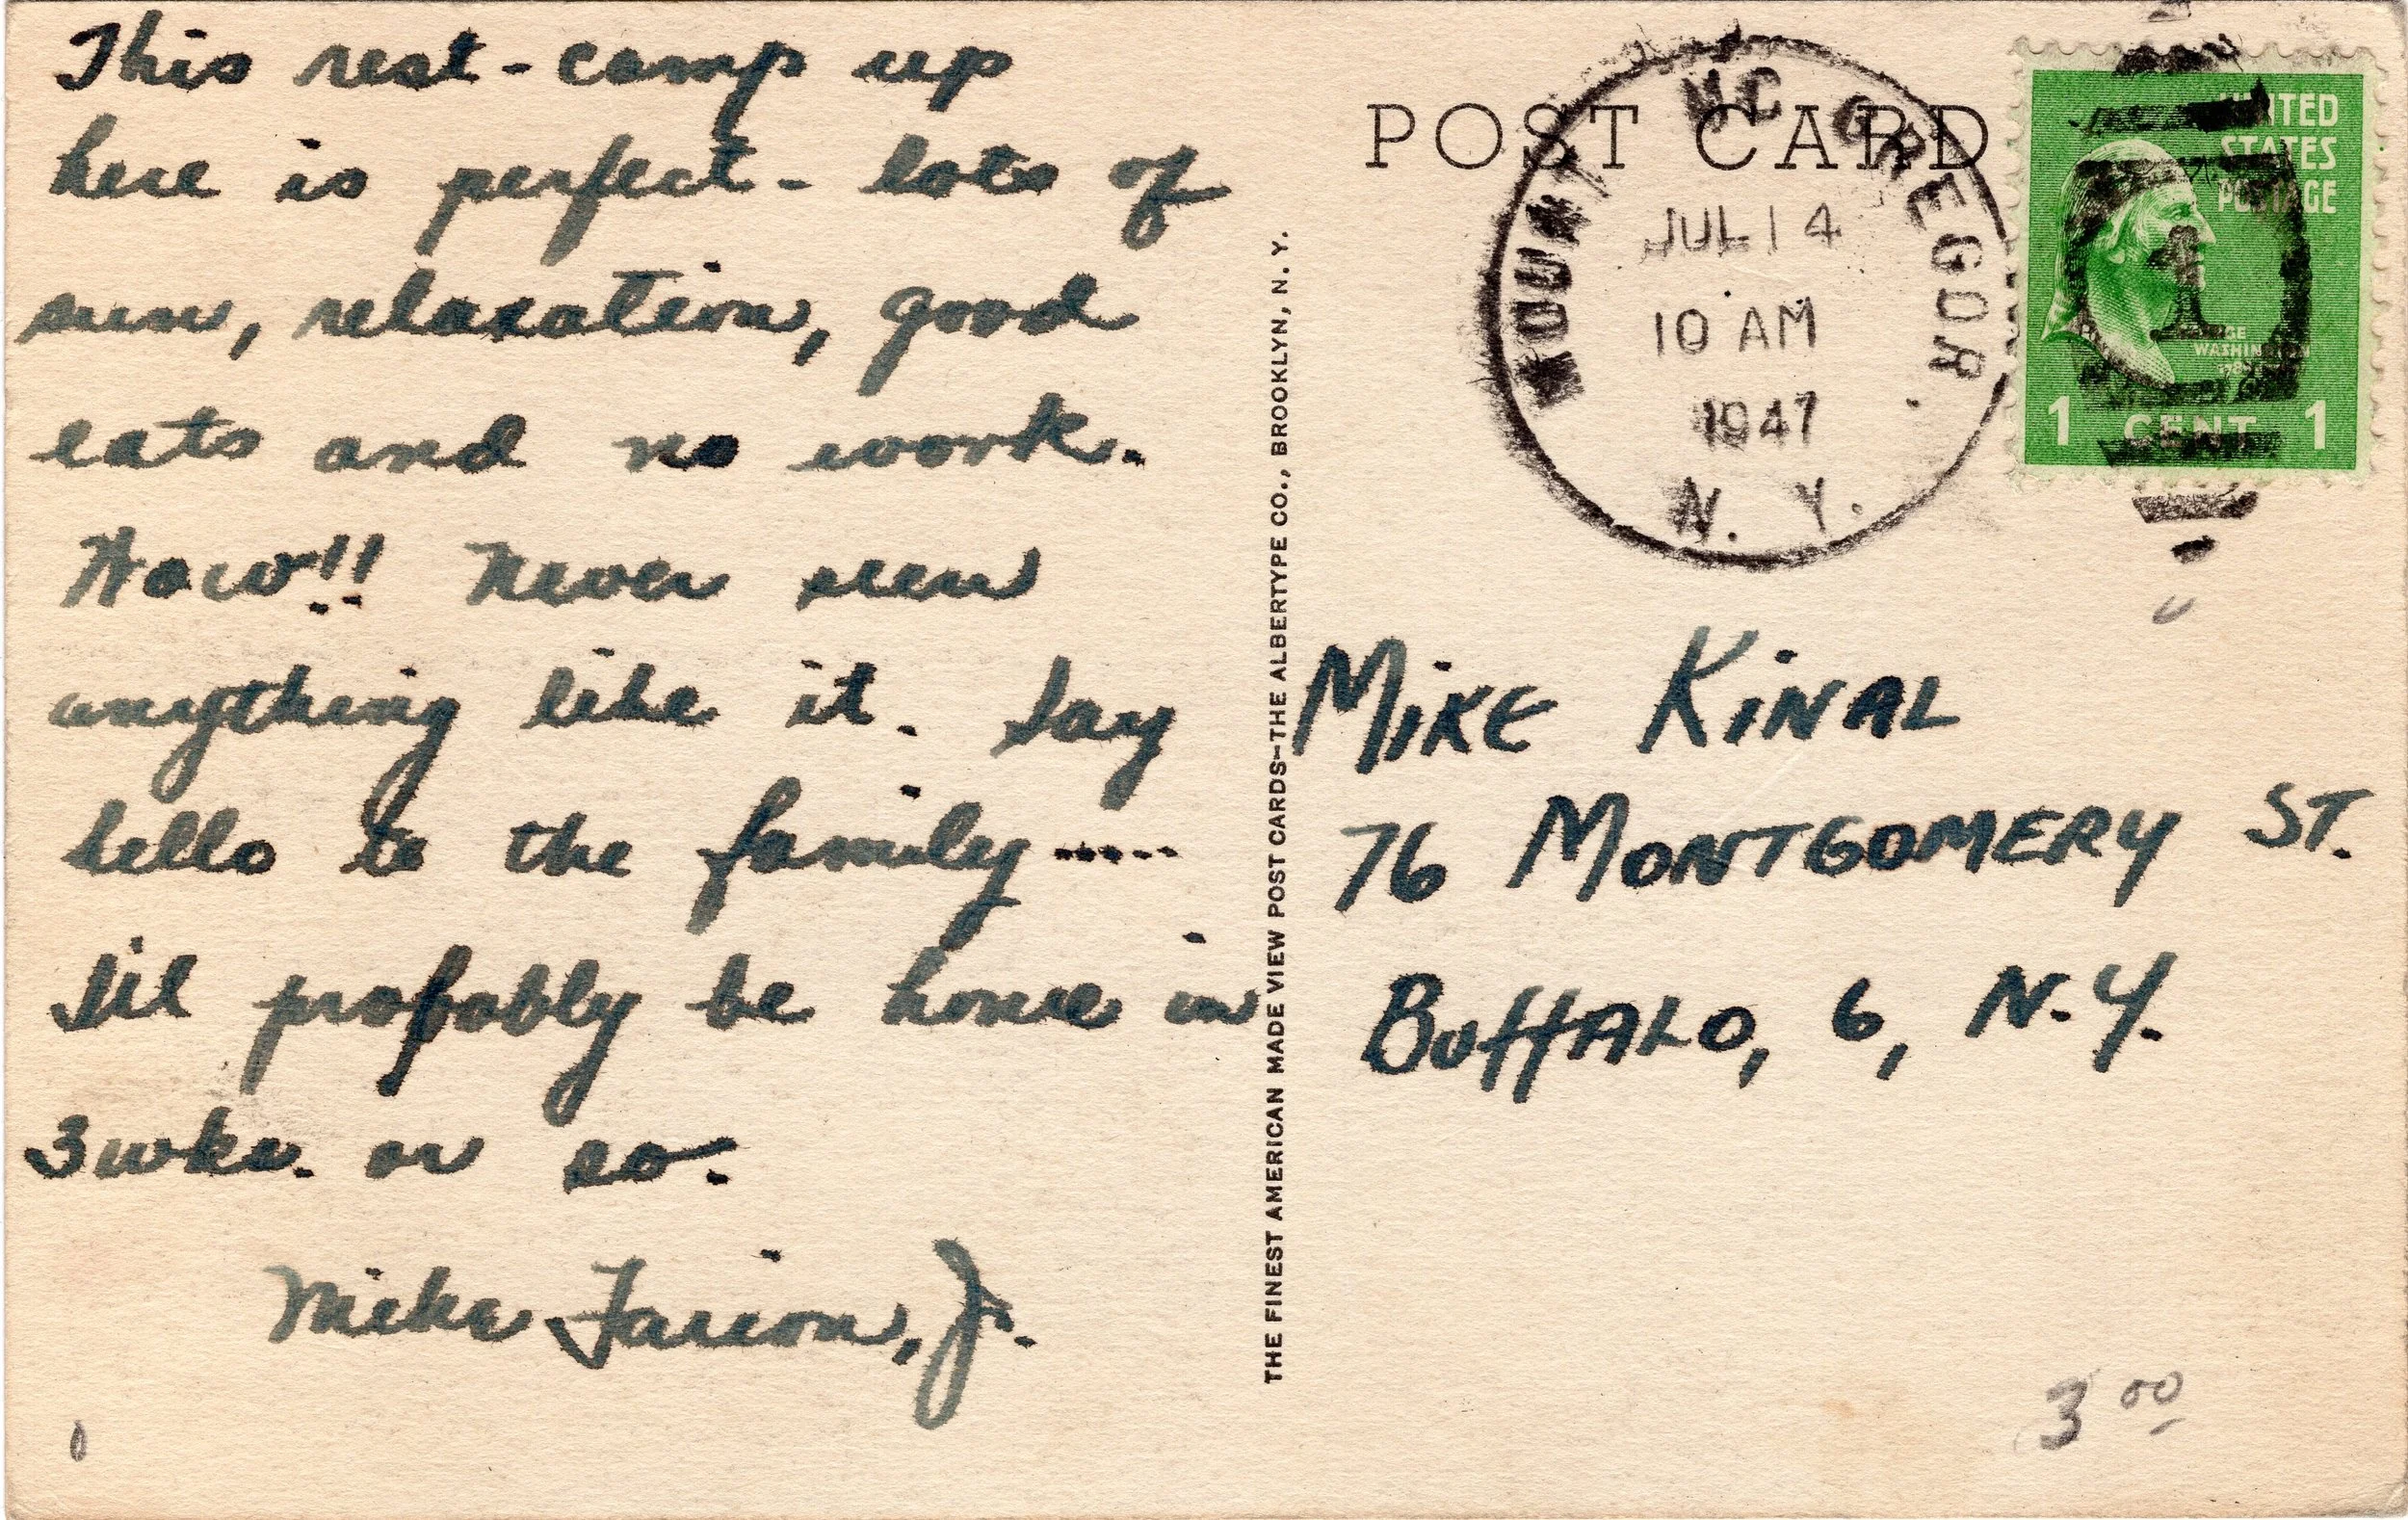 This rest-camp up
here is perfect - lots of
sun, relaxation, good
eats and no work.
Wow!! Never seen
anything like it. Say
hello to the family-----
I'll probably be home in
3 wks. or so.
Mike Farion, Jr.
THE FINEST AMERICAN MADE VIEW POST CARDS—THE ALBERTYPE CO., BROOKLYN, N. Y.
POST CARD
MOUNT MC GREGOR
JUL 14
10 AM
1947
N. Y.
UNITED
STATES
POSTAGE
1
WASHINGTON
1 CENT 1
MIKE KINAL
76 MONTGOMERY ST.
BUFFALO, 6, N.Y.
3 00